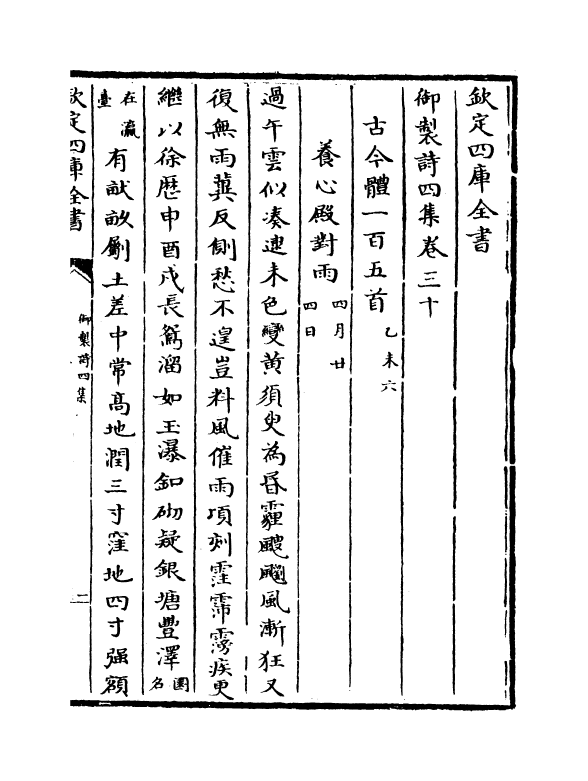 欽定四庫全書
御製詩四集卷三十
古今體一百五首乙未六
養心殿對雨四月廿四日
過午雲似凑逮未色變黄須臾為昏霾颷飅風漸狂又
復無雨冀反側愁不遑豈料風催雨頃刻霔霈霶疾更
繼以徐歴申酉戌長簷溜如玉瀑釦砌疑銀塘豐澤園名
在瀛臺有試畝劚土差中常高地潤三寸窪地四寸强額
欽定四庫全書
御製詩四集
二